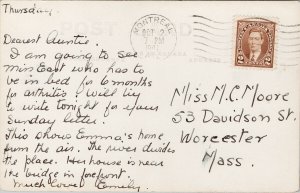 Thursday
Dearest Auntie.
I am going to see
Miss East who has to
be in bed for 6 months
for arthritis. Will try
to write tonight for your
Sunday letter.
This shows Emma's home
from the air. The river divides
the place. Her house is near
the bridge in forefront.
Much love Emely.
MONTREAL
PM
CANADA
2
2
Miss M. C. Moore
53 Davidson St.
Worcester
Mass.